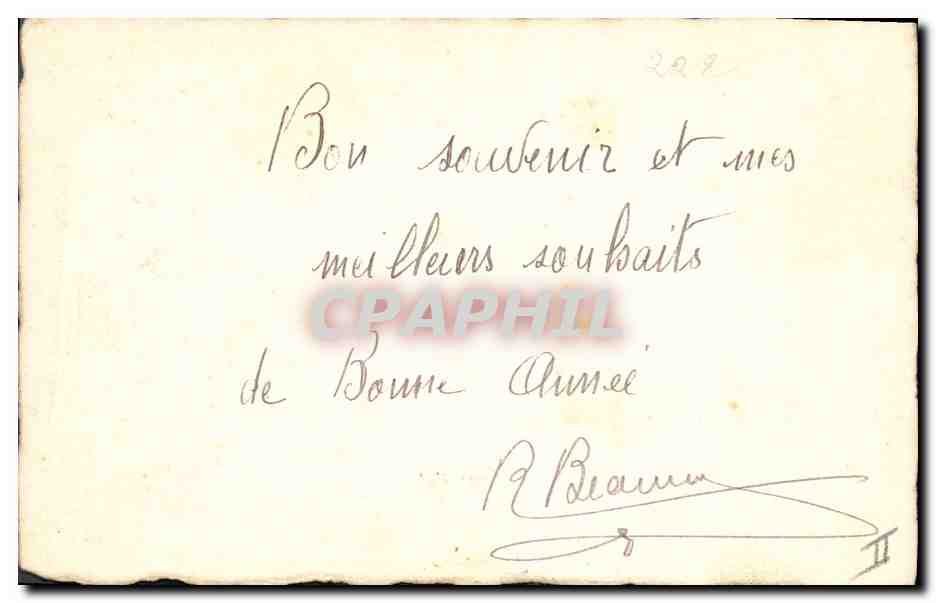 229
Bon souvenir et mes
meilleurs souhaits
CPAPHIL
de Bonne Année
R
II